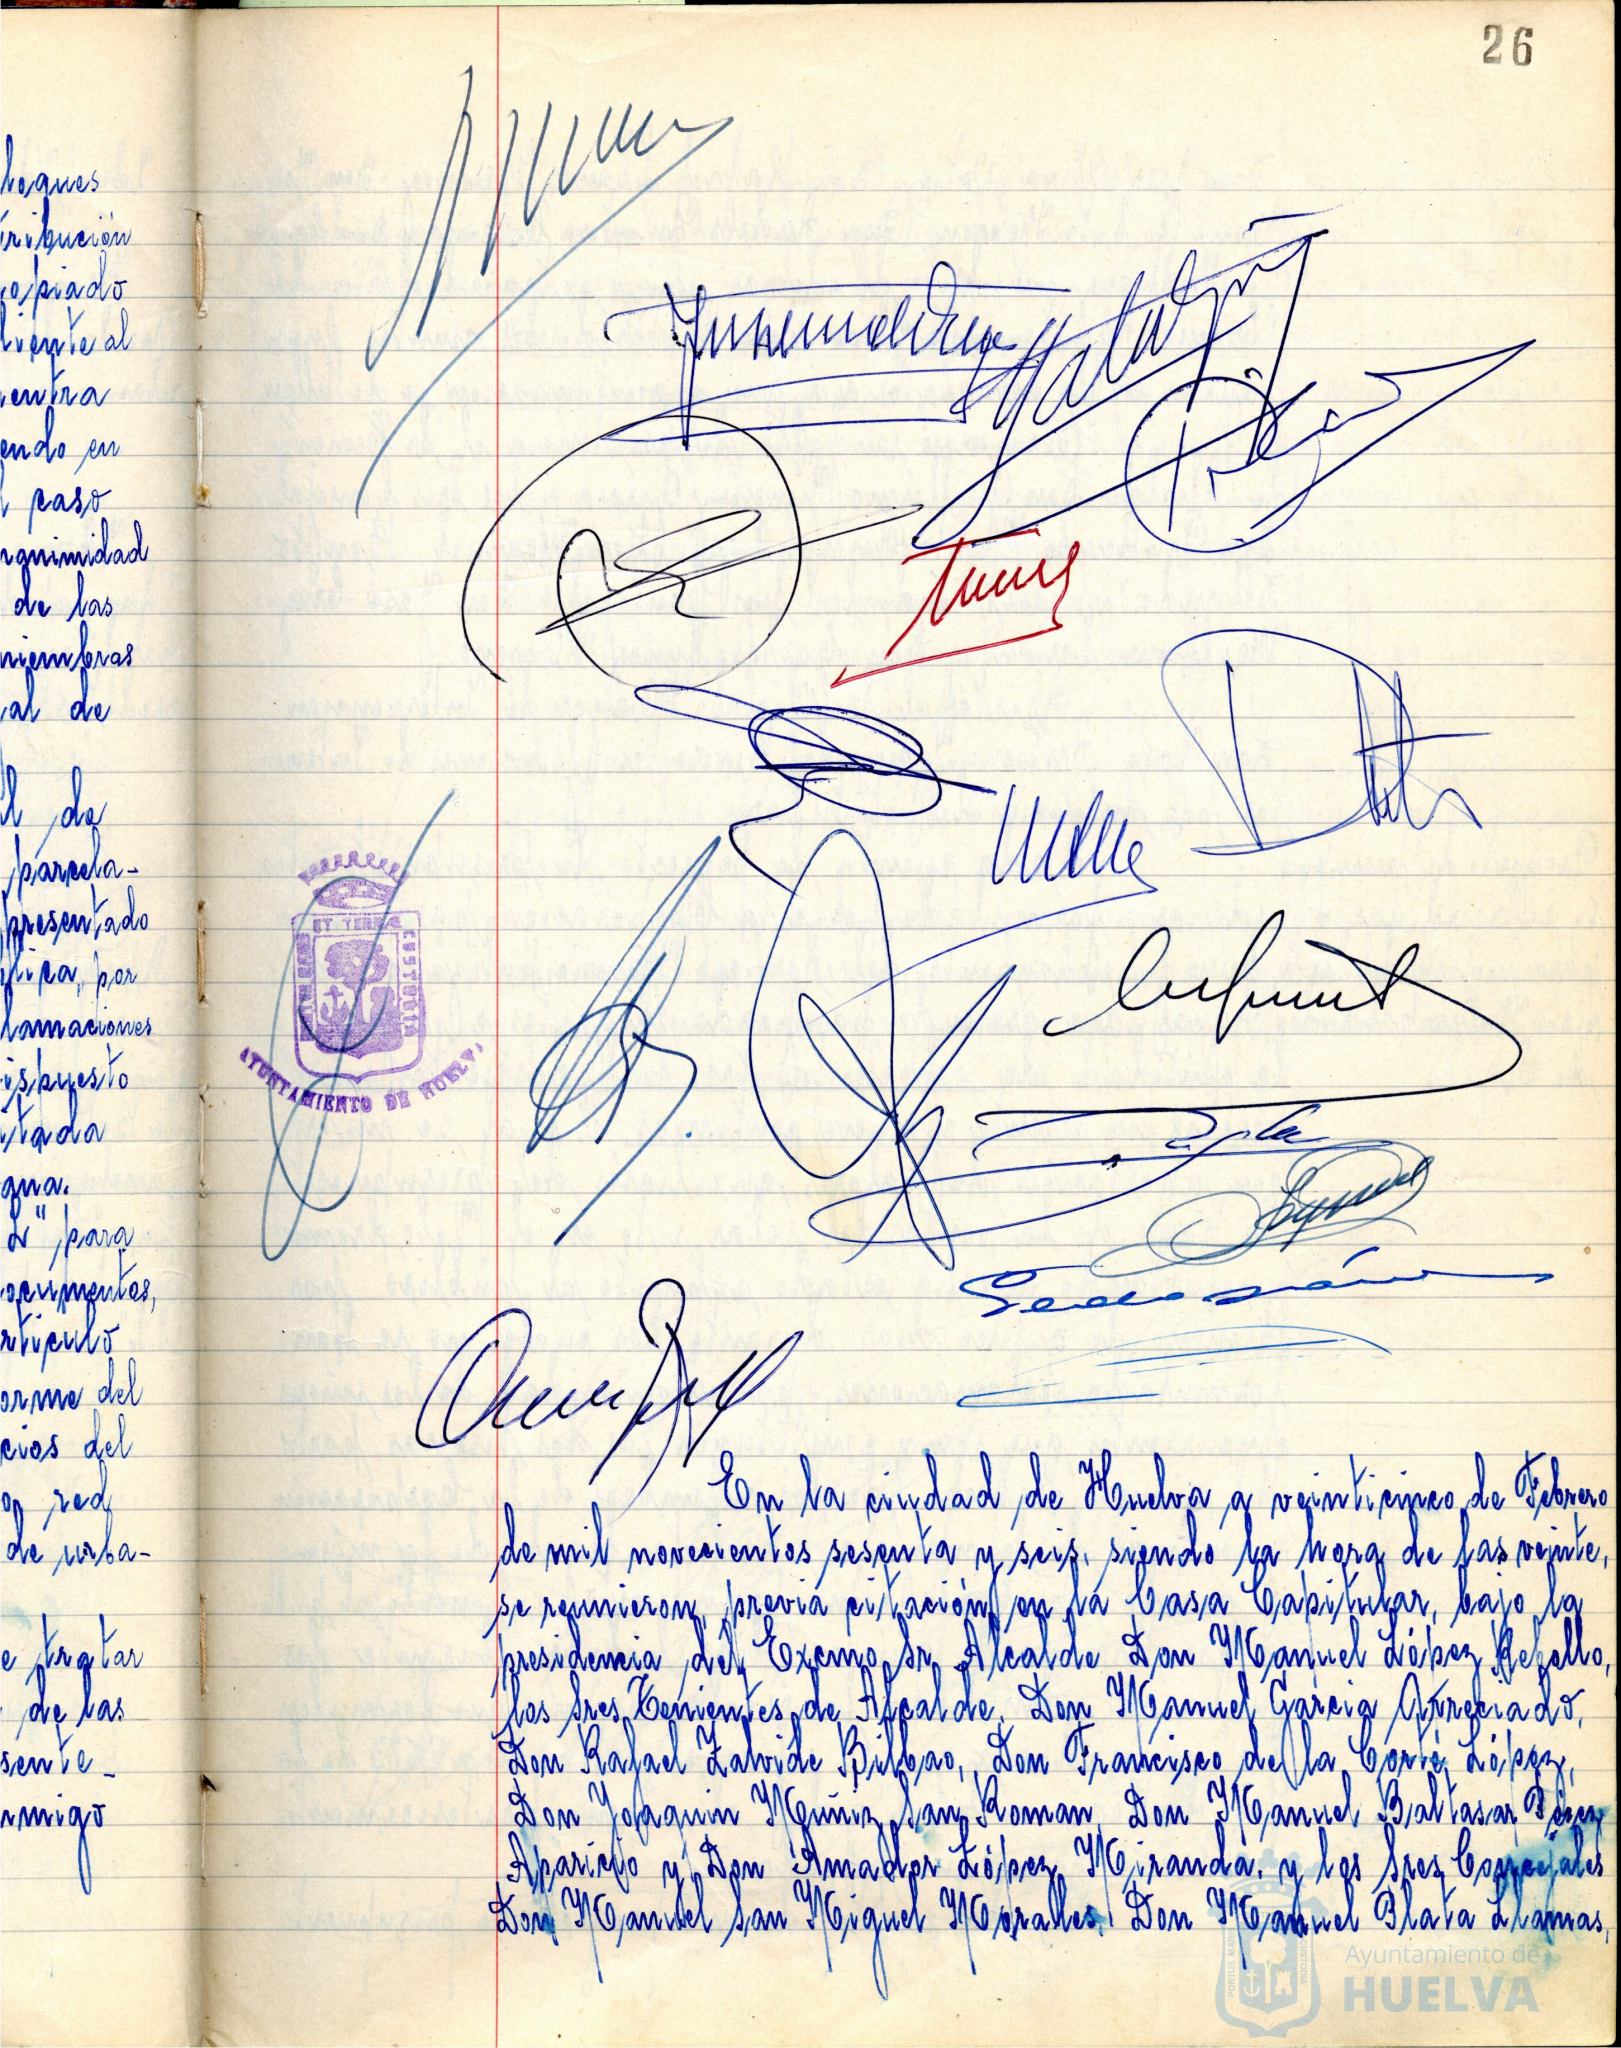 26
loques
tribución
opiado
diente al
entra
endo en
l caso
nanimidad
de las
miembros
al de
l de
parcela-
presentado
por
lamaciones
ispuesto
itada
gua.
para
ocumentos,
rtículo
orme del
cios del
red
de urba-
e tratar
de las
sente-
nmigo
PORTUS MARIS ET TERRAE CUSTODIA
AYUNTAMIENTO DE HUELVA
En la ciudad de Huelva a veinticinco de Febrero
de mil novecientos sesenta y seis, siendo la hora de las veinte,
se reunieron, previa citación, en la Casa Capitular, bajo la
presidencia del Excmo. Sr. Alcalde Don Manuel López Rebollo,
los Sres Tenientes de Alcalde, Don Manuel García Orreciado,
Don Rafael Zalvide Bilbao, Don Francisco de la Corte López,
Don Joaquin Muñiz San Roman, Don Manuel Baltasar Pérez
Aparicio y Don Amador López Miranda, y los Sres Concejales
Don Manuel San Miguel Moralles, Don Manuel Plata Llamas,
Ayuntamiento de
HUELVA